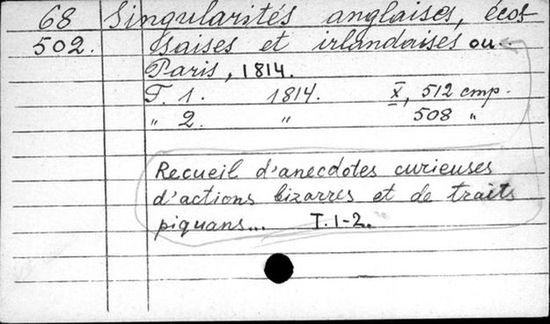 68 Singularités anglaises, écos-
502. saises et irlandaises ou
Paris, 1814.
T. 1. 1814. X, 512 cmp.
" 2. " 508 "
Recueil d'anecdotes curieuses
d'actions bizarres et de traits
piquans... T. 1-2.